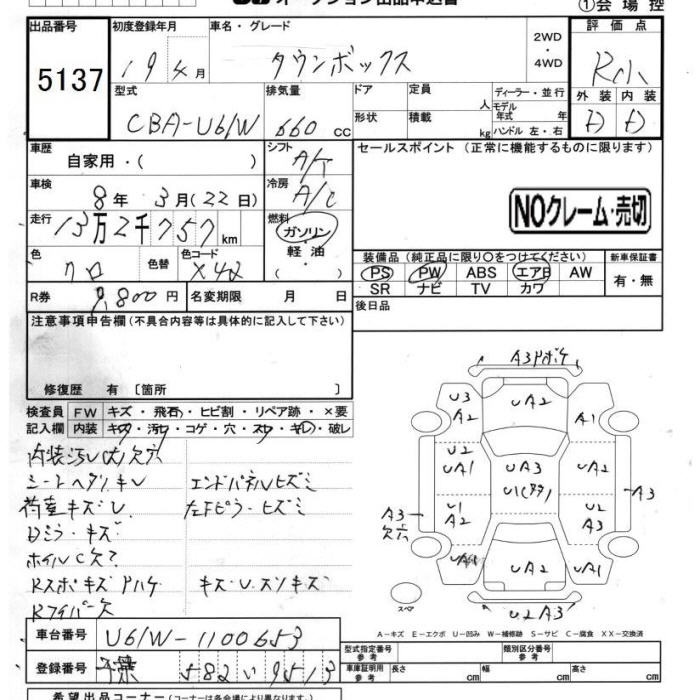 ①会場控
出品番号 初度登録年月 車名・グレード 2WD・4WD 評価点
5137 19年4月 タウンボックス R小
型式 排気量 ドア 定員 人 ディーラー・並行 外装 内装
CBA-U61W 660cc 形状 積載 kg モデル年式 年 ハンドル 左・右 D D
車歴 自家用・( ) シフト A/T セールスポイント (正常に機能するものに限ります)
車検 8年 3月(22日) 冷房 A/C
NOクレーム・売切
走行 13万2千757km 燃料 ガソリン・軽油
色 クロ 色替 色コード X42
装備品(純正品に限り○をつけてください) 新車保証書
PS PW ABS エアB AW 有・無
SR ナビ TV カワ
R券 9,800円 名変期限 月 日 後日品
注意事項申告欄(不具合内容等は具体的に記入して下さい)
修復歴 有 [箇所 ]
検査員 FW キズ・飛石・ヒビ割・リペア跡・×要
記入欄 内装 キズ・汚レ・コゲ・穴・スレ・キレ・破レ
シートヘタリキレ エンドパネルヒズミ
荷室キズU 左Fピラーヒズミ
Dミラーキズ
ホイルC欠
A3
U3 A2 UA2 A1
U2 UA1 UA3 UA2
A3 A3
U1 A2 U2 A3
UA2 UA1
スペア U2A3
A-キズ E-エクボ U-凹み W-補修跡 S-サビ C-腐食 XX-交換済
車台番号 U61W-1100653
型式指定番号 参考 類別区分番号 参考
登録番号 千葉 582 い 9513
車庫証明用 参考 長さ 幅 高さ
希望出品コーナー(コーナーは各会場により異なります)